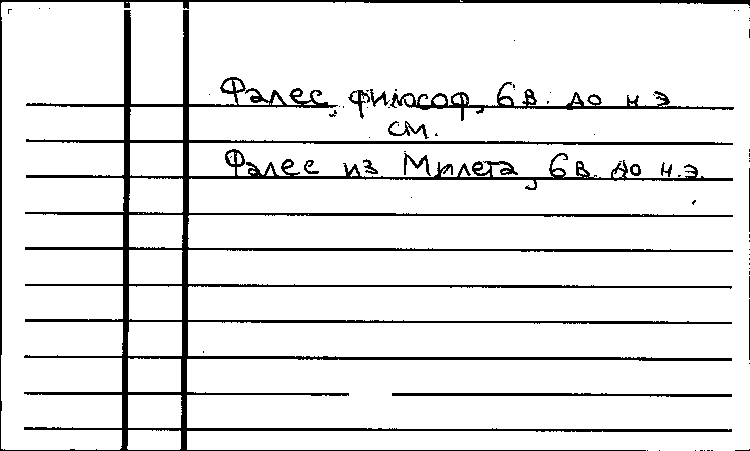 Фалес, философ, 6 в. до н э
см.
Фалес из Милета, 6 в. до н.э.